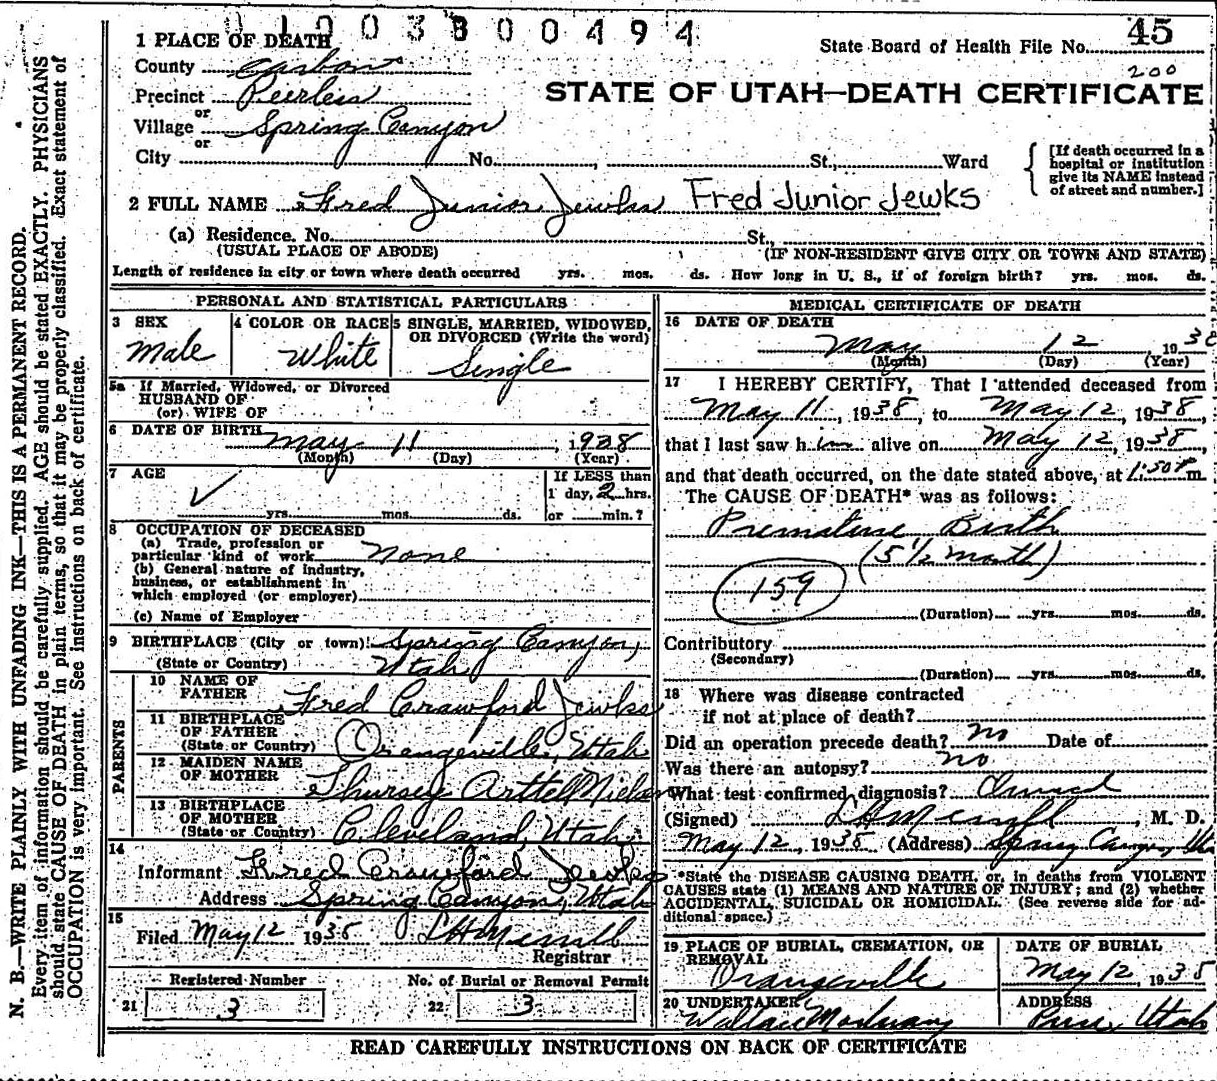 0 1 0 0 3 8 0 0 4 9 4
State Board of Health File No. 45
200
1 PLACE OF DEATH
County Carbon
Precinct Peerless
or
Village Spring Canyon
or
City No. , St., Ward
STATE OF UTAH—DEATH CERTIFICATE
[If death occurred in a
hospital or institution
give its NAME instead
of street and number.]
2 FULL NAME Fred Junior Jewks Fred Junior Jewks
(a) Residence. No. St.,
(USUAL PLACE OF ABODE) (IF NON-RESIDENT GIVE CITY OR TOWN AND STATE)
Length of residence in city or town where death occurred yrs. mos. ds. How long in U. S., if of foreign birth? yrs. mos. ds.
PERSONAL AND STATISTICAL PARTICULARS
3 SEX
Male
4 COLOR OR RACE
White
5 SINGLE, MARRIED, WIDOWED,
OR DIVORCED (Write the word)
Single
5a If Married, Widowed, or Divorced
HUSBAND OF
(or) WIFE OF
6 DATE OF BIRTH
May 11 , 1938
(Month) (Day) (Year)
7 AGE
yrs. mos. ds.
If LESS than
1 day, 2 hrs.
or min.?
8 OCCUPATION OF DECEASED
(a) Trade, profession or
particular kind of work None
(b) General nature of industry,
business, or establishment in
which employed (or employer)
(c) Name of Employer
9 BIRTHPLACE (City or town) Spring Canyon,
(State or Country) Utah
PARENTS
10 NAME OF
FATHER Fred Crawford Jewks
11 BIRTHPLACE
OF FATHER
(State or Country) Orangeville, Utah
12 MAIDEN NAME
OF MOTHER Thursey Arttell Nielson
13 BIRTHPLACE
OF MOTHER
(State or Country) Cleveland, Utah
14
Informant Fred Crawford Jewks
Address Spring Canyon, Utah
15
Filed May 12 1938 L H Merrill
Registrar
Registered Number
21 3
No. of Burial or Removal Permit
22 3
MEDICAL CERTIFICATE OF DEATH
16 DATE OF DEATH
May 12 , 193
(Month) (Day) (Year)
17 I HEREBY CERTIFY, That I attended deceased from
May 11 , 1938, to May 12, 1938,
that I last saw him alive on May 12, 1938,
and that death occurred, on the date stated above, at m.
The CAUSE OF DEATH* was as follows:
Premature Birth
(5 1/2 month)
159
(Duration) yrs. mos. ds.
Contributory
(Secondary)
(Duration) yrs. mos. ds.
18 Where was disease contracted
if not at place of death?
Did an operation precede death? No Date of
Was there an autopsy? No
What test confirmed diagnosis?
(Signed) L H Merrill , M. D.
May 12, 1938 (Address) Spring Canyon, Ut
*State the DISEASE CAUSING DEATH, or, in deaths from VIOLENT
CAUSES state (1) MEANS AND NATURE OF INJURY; and (2) whether
ACCIDENTAL, SUICIDAL OR HOMICIDAL. (See reverse side for ad-
ditional space.)
19 PLACE OF BURIAL, CREMATION, OR
REMOVAL
Orangeville
DATE OF BURIAL
May 12, 1938
20 UNDERTAKER
Wallace Mortuary
ADDRESS
Price, Utah
READ CAREFULLY INSTRUCTIONS ON BACK OF CERTIFICATE
N. B.—WRITE PLAINLY WITH UNFADING INK—THIS IS A PERMANENT RECORD.
Every item of information should be carefully supplied. AGE should be stated EXACTLY. PHYSICIANS
should state CAUSE OF DEATH in plain terms, so that it may be properly classified. Exact statement of
OCCUPATION is very important. See instructions on back of certificate.